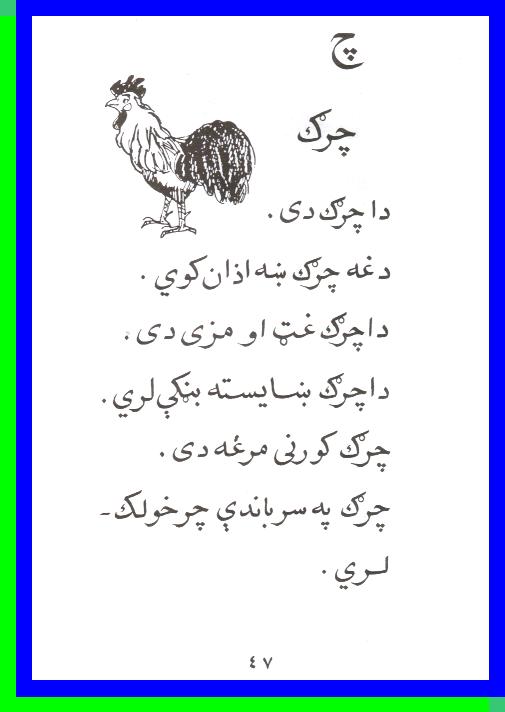 چ
چرګ
دا چرګ دی.
دغه چرګ ښه اذان کوي.
دا چرګ غټ او مزی دی.
دا چرګ ښـایسـته بڼکې لري.
چرګ کورنی مرغه دی.
چرګ په سر باندې چرخولک-
لــري.
٤٧